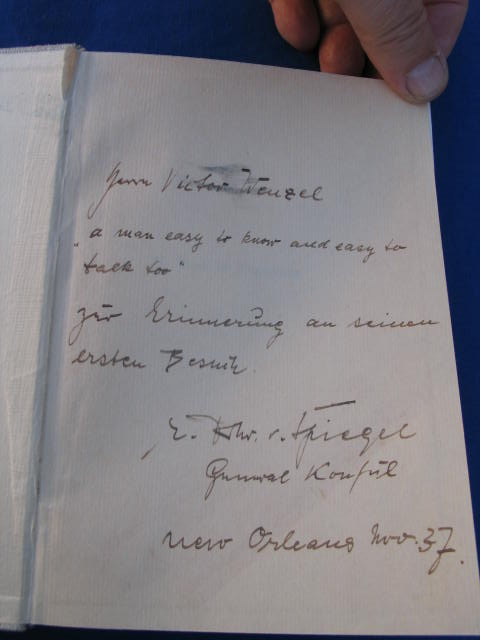 Herrn Victor Wenzel
"a man easy to know and easy to
talk too"
zur Erinnerung an seinen
ersten Besuch.
E. Fhr. v. Spiegel
General Konsul
New Orleans Nov. 37.